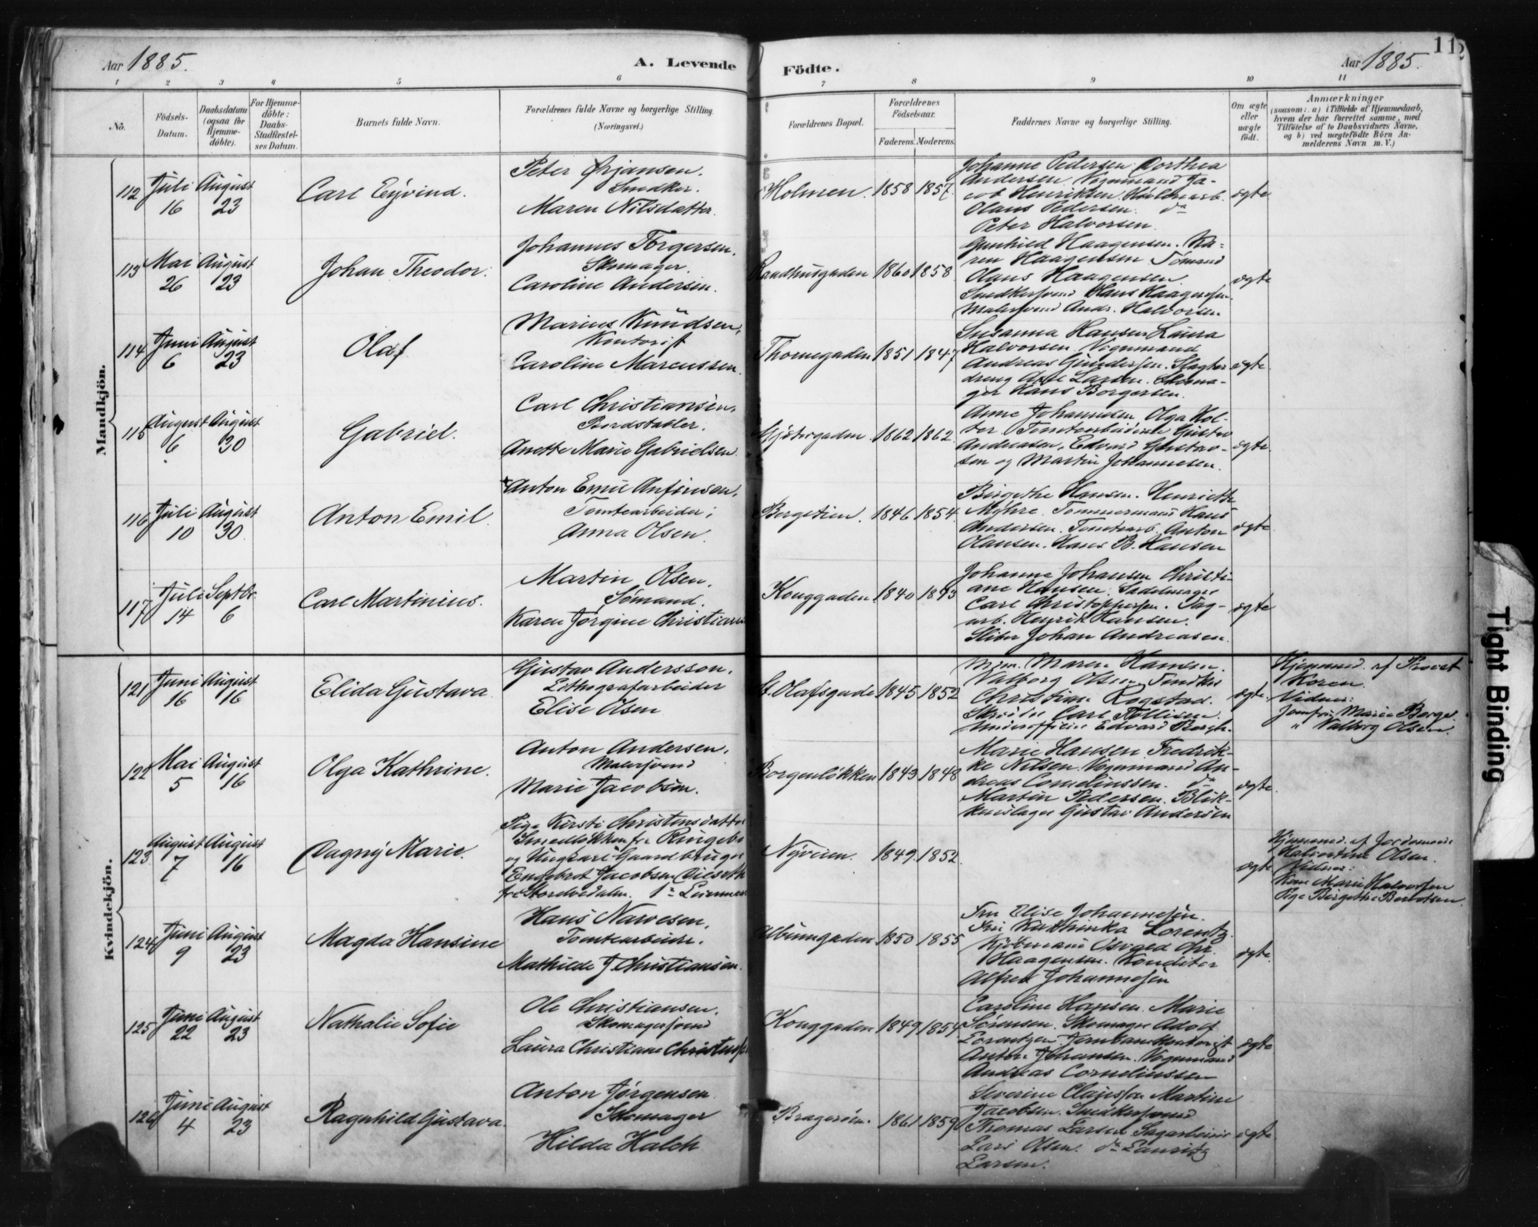 Aar 1885.
A. Levende
Födte.
Aar 1885.
11
1 2 3 4 5 6 7 8 9 10 11
No.
Födsels-Datum.
Daabsdatum (ogsaa for Hjemme-döbte).
For Hjemme-döbte: Daabs-Stadfæstel-ses Datum.
Barnets fulde Navn.
Forældrenes fulde Navne og borgerlige Stilling (Næringsvei.)
Forældrenes Bopæl.
Forældrenes Födselsaar.
Faderens. Moderens.
Faddernes Navne og borgerlige Stilling.
Om ægte eller uægte födt.
Anmærkninger
(saasom: a) i Tilfælde af Hjemmedaab, hvem der har forrettet samme, med Tilföielse af to Daabsvidners Navne, og b) ved uægtefödte Börn Anmelderens Navn m. V.)
Mandkjön.
112 Juli 16 August 23 Carl Eyvind.
Peter Ørjansen.
Snedker.
Maren Nilsdatter.
Holmen. 1858 1857
Johanne Pedersen Dorthea
Andersen, Vognmand Ja-
cob Henriksen
Olaus Pedersen. do
Peter Halvorsen.
ægte
113 Mai 26 August 23 Johan Theodor.
Johannes Torgersen.
Skomager.
Caroline Andersen.
Raadhusgaden 1860 1858
Gunhild Haagensen. Ka-
ren Haagensen Tömmd
Olaus Haagensen
Snedkersvend Hans Haagensen
Malersvend Andr. Halvorsen
ægte
114 Juni 6 August 23 Olaf
Marius Knudsen,
Kontorist
Caroline Marcussen.
Thornegaden 1851 1847
Susanna Hansen Laura
Halvorsen Vognmand
Andreas Gundersen. Slagter
dreng Axel Larsen. Skoma-
ger Hans Borgersen.
ægte
115 August 6 August 30 Gabriel.
Carl Christiansen,
Bordstabler.
Anette Marie Gabrielsen
1862 1862
Anne Johannesen Olga Hol-
ter Tomtearbeidere Gustav
Andreassen, Edvard Gustav-
sen og Martin Johannesen.
ægte
116 Juli 10 August 30 Anton Emil.
Anton Emil Anfinsen,
Tomtearbeider;
Anna Olsen.
Bergstien. 1846 1854
Birgithe Hansen. Henriette
Myhre. Tömmermand Hans
Andersen. Tomtearb. Anton
Olausen. Hans B. Hansen
ægte
117 Juli 14 Septbr. 6 Carl Martinius.
Martin Olsen,
Sömand.
Karen Jörgine Christiansen
Konggaden 1840 1843
Johanne Johansen Christi-
ane Hansen. Sadelmager
Carl Christophersen. Sag-
arb. Henrik Hansen.
Sliber Johan Andreasen.
ægte
Kvindekjön.
121 Juni 16 August 16 Elida Gustava
Gustav Andersson.
Lithografarbeider
Elise Olsen
St. Olafsgade 1845 1852
Maren Hansen.
Valborg Olsen Snedker
Christian Rogstad.
Carl Tollisen.
Underofficer Edvard Bergh.
ægte
Hjemmed. af Provst
Koren.
Vidner:
Jomfru Marie Berge.
" Valborg Olsen.
122 Mai 5 August 16 Olga Kathrine.
Anton Andersen,
Malersvend
Marie Jacobsen.
Borgenlökken 1843 1848
Marie Hansen Fredrik-
ke Nilsen Vognmænd An-
dreas Corneliussen. do
Martin Pedersen. Blik-
kenslager Gustav Andersen
ægte.
123 August 7 August 16 Dagny Marie.
Pige Kirsti Christensdatter
Smedlökken fra Ringebo
og Ungkarl Gaardbruger
Engebret Jacobsen
Nyveien. 1849. 1852.
ægte
Hjemmed. af Jordmoder
Halvorine Olsen.
Vidner:
Kone Marie Halvorsen
Pige Birgithe Berntsen.
124 Juni 9 August 23 Magda Hansine
Hans Narvesen,
Tomtearbeider.
Mathilde J Christiansen.
Albumgaden 1850 1855
Fru Elise Johannesen.
Frk Kathinka Lorentz.
Kjöbmand Osvald Chr.
Haagensen. Konditor
Alfred Johannesen
ægte
125 Juni 22 August 23 Nathalie Sofie
Ole Christiansen.
Skomagersvend
Laura Christiane Christensen
Konggaden 1849 1854
Caroline Hansen Marie
Sörensen. Skomager Adolf
Lorentzen
Anton Johansen. Vognmand
Andreas Corneliussen
ægte
126 Juni 4 August 23 Ragnhild Gustava.
Anton Jörgensen
Skomager
Hilda Halch
Bragerøen. 1861 1859
Severine Martine
Jacobsen. Snedkersvend
Thomas Larsen Sagarbeider
Lars Olsen. do Lauritz
Larsen.
ægte
Tight Binding